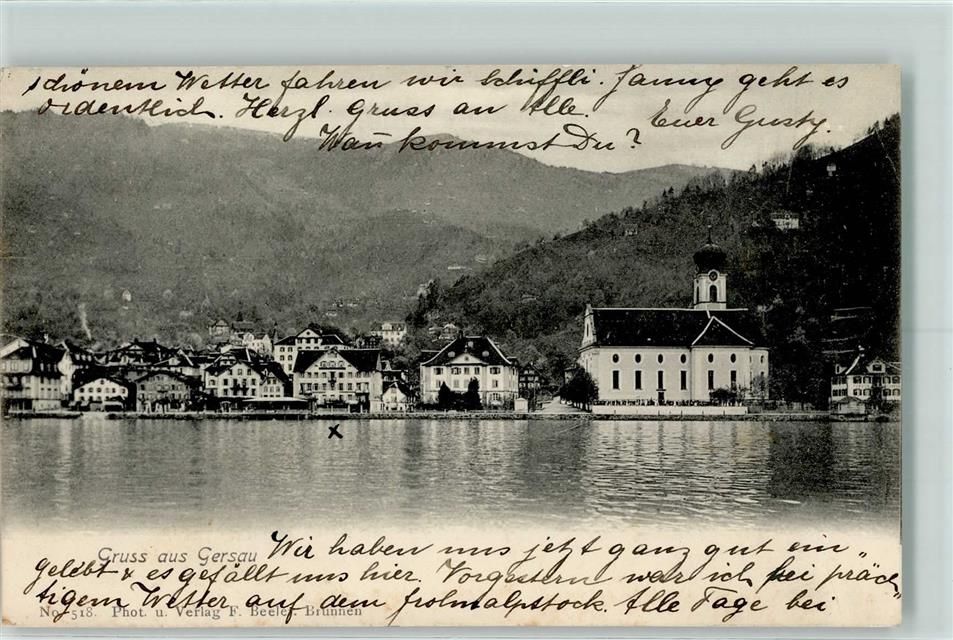 schönem Wetter fahren wir Schiffli. Fanny geht es
ordentlich. Herzl. Gruss an Alle. Euer Gusty.
Wañ kommst Du?
Gruss aus Gersau
Wir haben uns jetzt ganz gut ein„
gelebt & es gefällt uns hier. Vorgestern war ich bei präch„
tigem Wetter auf dem Frohnalpstock. Alle Tage bei
No. 518. Phot. u. Verlag F. Beeler, Brunnen